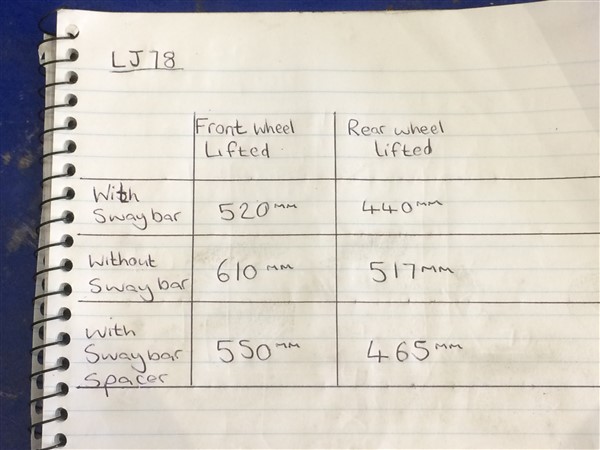 LJ78
Front wheel Rear wheel
Lifted lifted
With
Sway bar 520mm 440mm
Without
Sway bar 610mm 517mm
With
Sway bar 550mm 465mm
Spacer